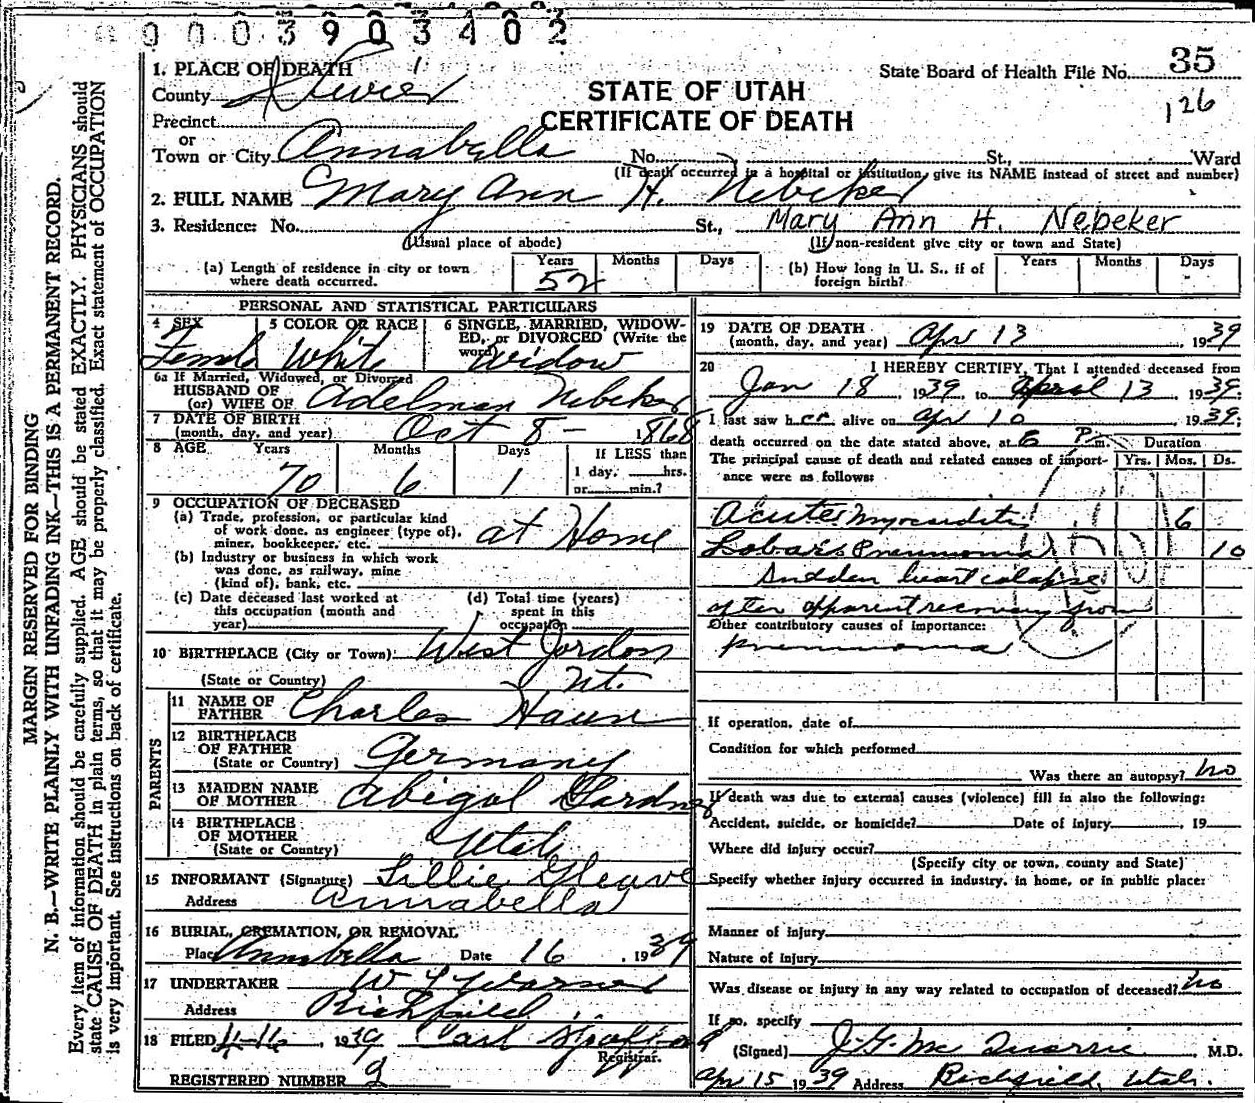 0 0 0 3 9 0 3 4 0 2
MARGIN RESERVED FOR BINDING
N. B.—WRITE PLAINLY WITH UNFADING INK—THIS IS A PERMANENT RECORD.
Every item of information should be carefully supplied. AGE should be stated EXACTLY. PHYSICIANS should
state CAUSE OF DEATH in plain terms, so that it may be properly classified. Exact statement of OCCUPATION
is very important. See instructions on back of certificate.
State Board of Health File No. 35
126
STATE OF UTAH
CERTIFICATE OF DEATH
1. PLACE OF DEATH
County Sevier
Precinct
or
Town or City Annabella No. St., Ward
(If death occurred in a hospital or institution, give its NAME instead of street and number)
2. FULL NAME Mary Ann H. Nebeker
3. Residence: No. St., Mary Ann H. Nebeker
(Usual place of abode) (If non-resident give city or town and State)
(a) Length of residence in city or town where death occurred. Years 52 Months Days (b) How long in U. S., if of foreign birth? Years Months Days
PERSONAL AND STATISTICAL PARTICULARS
4 SEX Female 5 COLOR OR RACE White 6 SINGLE, MARRIED, WIDOWED, or DIVORCED (Write the word) Widow
6a If Married, Widowed, or Divorced
HUSBAND OF
(or) WIFE OF Adelman Nebeker
7 DATE OF BIRTH
(month, day, and year) Oct 8 - 1868
8 AGE Years 70 Months 6 Days 1 If LESS than 1 day, hrs. or min.?
9 OCCUPATION OF DECEASED
(a) Trade, profession, or particular kind of work done, as engineer (type of), miner, bookkeeper, etc. at Home
(b) Industry or business in which work was done, as railway, mine (kind of), bank, etc.
(c) Date deceased last worked at this occupation (month and year) (d) Total time (years) spent in this occupation
10 BIRTHPLACE (City or Town) West Jordon
(State or Country) Ut.
PARENTS
11 NAME OF FATHER Charles Haun
12 BIRTHPLACE OF FATHER
(State or Country) Germany
13 MAIDEN NAME OF MOTHER Abigal Gardner
14 BIRTHPLACE OF MOTHER
(State or Country) Utah
15 INFORMANT (Signature) Lillie Gleave
Address Annabella
16 BURIAL, CREMATION, OR REMOVAL
Place Annabella Date 16, 1939
17 UNDERTAKER
Address Richfield
18 FILED 4-16, 1939 Carl
Registrar.
REGISTERED NUMBER 2
19 DATE OF DEATH
(month, day, and year) Apr 13, 1939
20 I HEREBY CERTIFY, That I attended deceased from
Jan 18, 1939, to April 13 1939;
I last saw her alive on Apr 10 1939;
death occurred on the date stated above, at 6 P.m. Duration
The principal cause of death and related causes of importance were as follows: Yrs. Mos. Ds.
Acute Myocarditis 6
Lobar Pneumonia 10
Sudden heart colapse
after apparent recovery from
Other contributory causes of importance:
pneumonia
If operation, date of
Condition for which performed
Was there an autopsy? no
If death was due to external causes (violence) fill in also the following:
Accident, suicide, or homicide? Date of injury , 19
Where did injury occur?
(Specify city or town, county and State)
Specify whether injury occurred in industry, in home, or in public place:
Manner of injury
Nature of injury
Was disease or injury in any way related to occupation of deceased? no
If so, specify
(Signed) J. G. Mc Quarrie, M.D.
Apr 15 1939 Address Richfield, Utah.